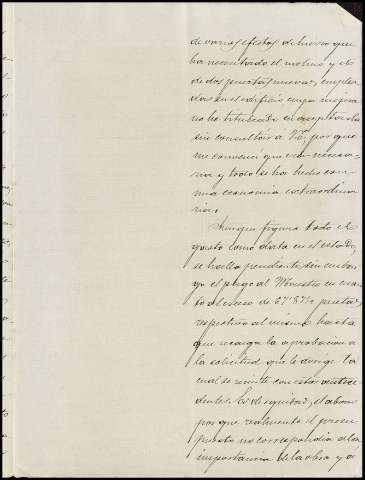 de varios efectos de hierro que
ha necesitado el molino y el
de dos puertas nuevas, emplea
das en el edificio cuya mejora
no he titubeado en aceptar
sin consultar a Vd. porque
me convencí que era necesa
ria y todo se ha hecho con
una economia extraordina
ria.
Aunque figura todo el
gasto como data en el estado,
se halla pendiente, sin embar
go el pago al Maestro en cuan
to al exceso de 67'87½ pesetas
respectivo al mismo hasta
que recaiga la aprobacion a
la solicitud que le dirige la
cual se remite con estos antece
dentes. Es de equidad, el abono
por que realmente el presu
puesto no correspondia a la
importancia de la obra y a